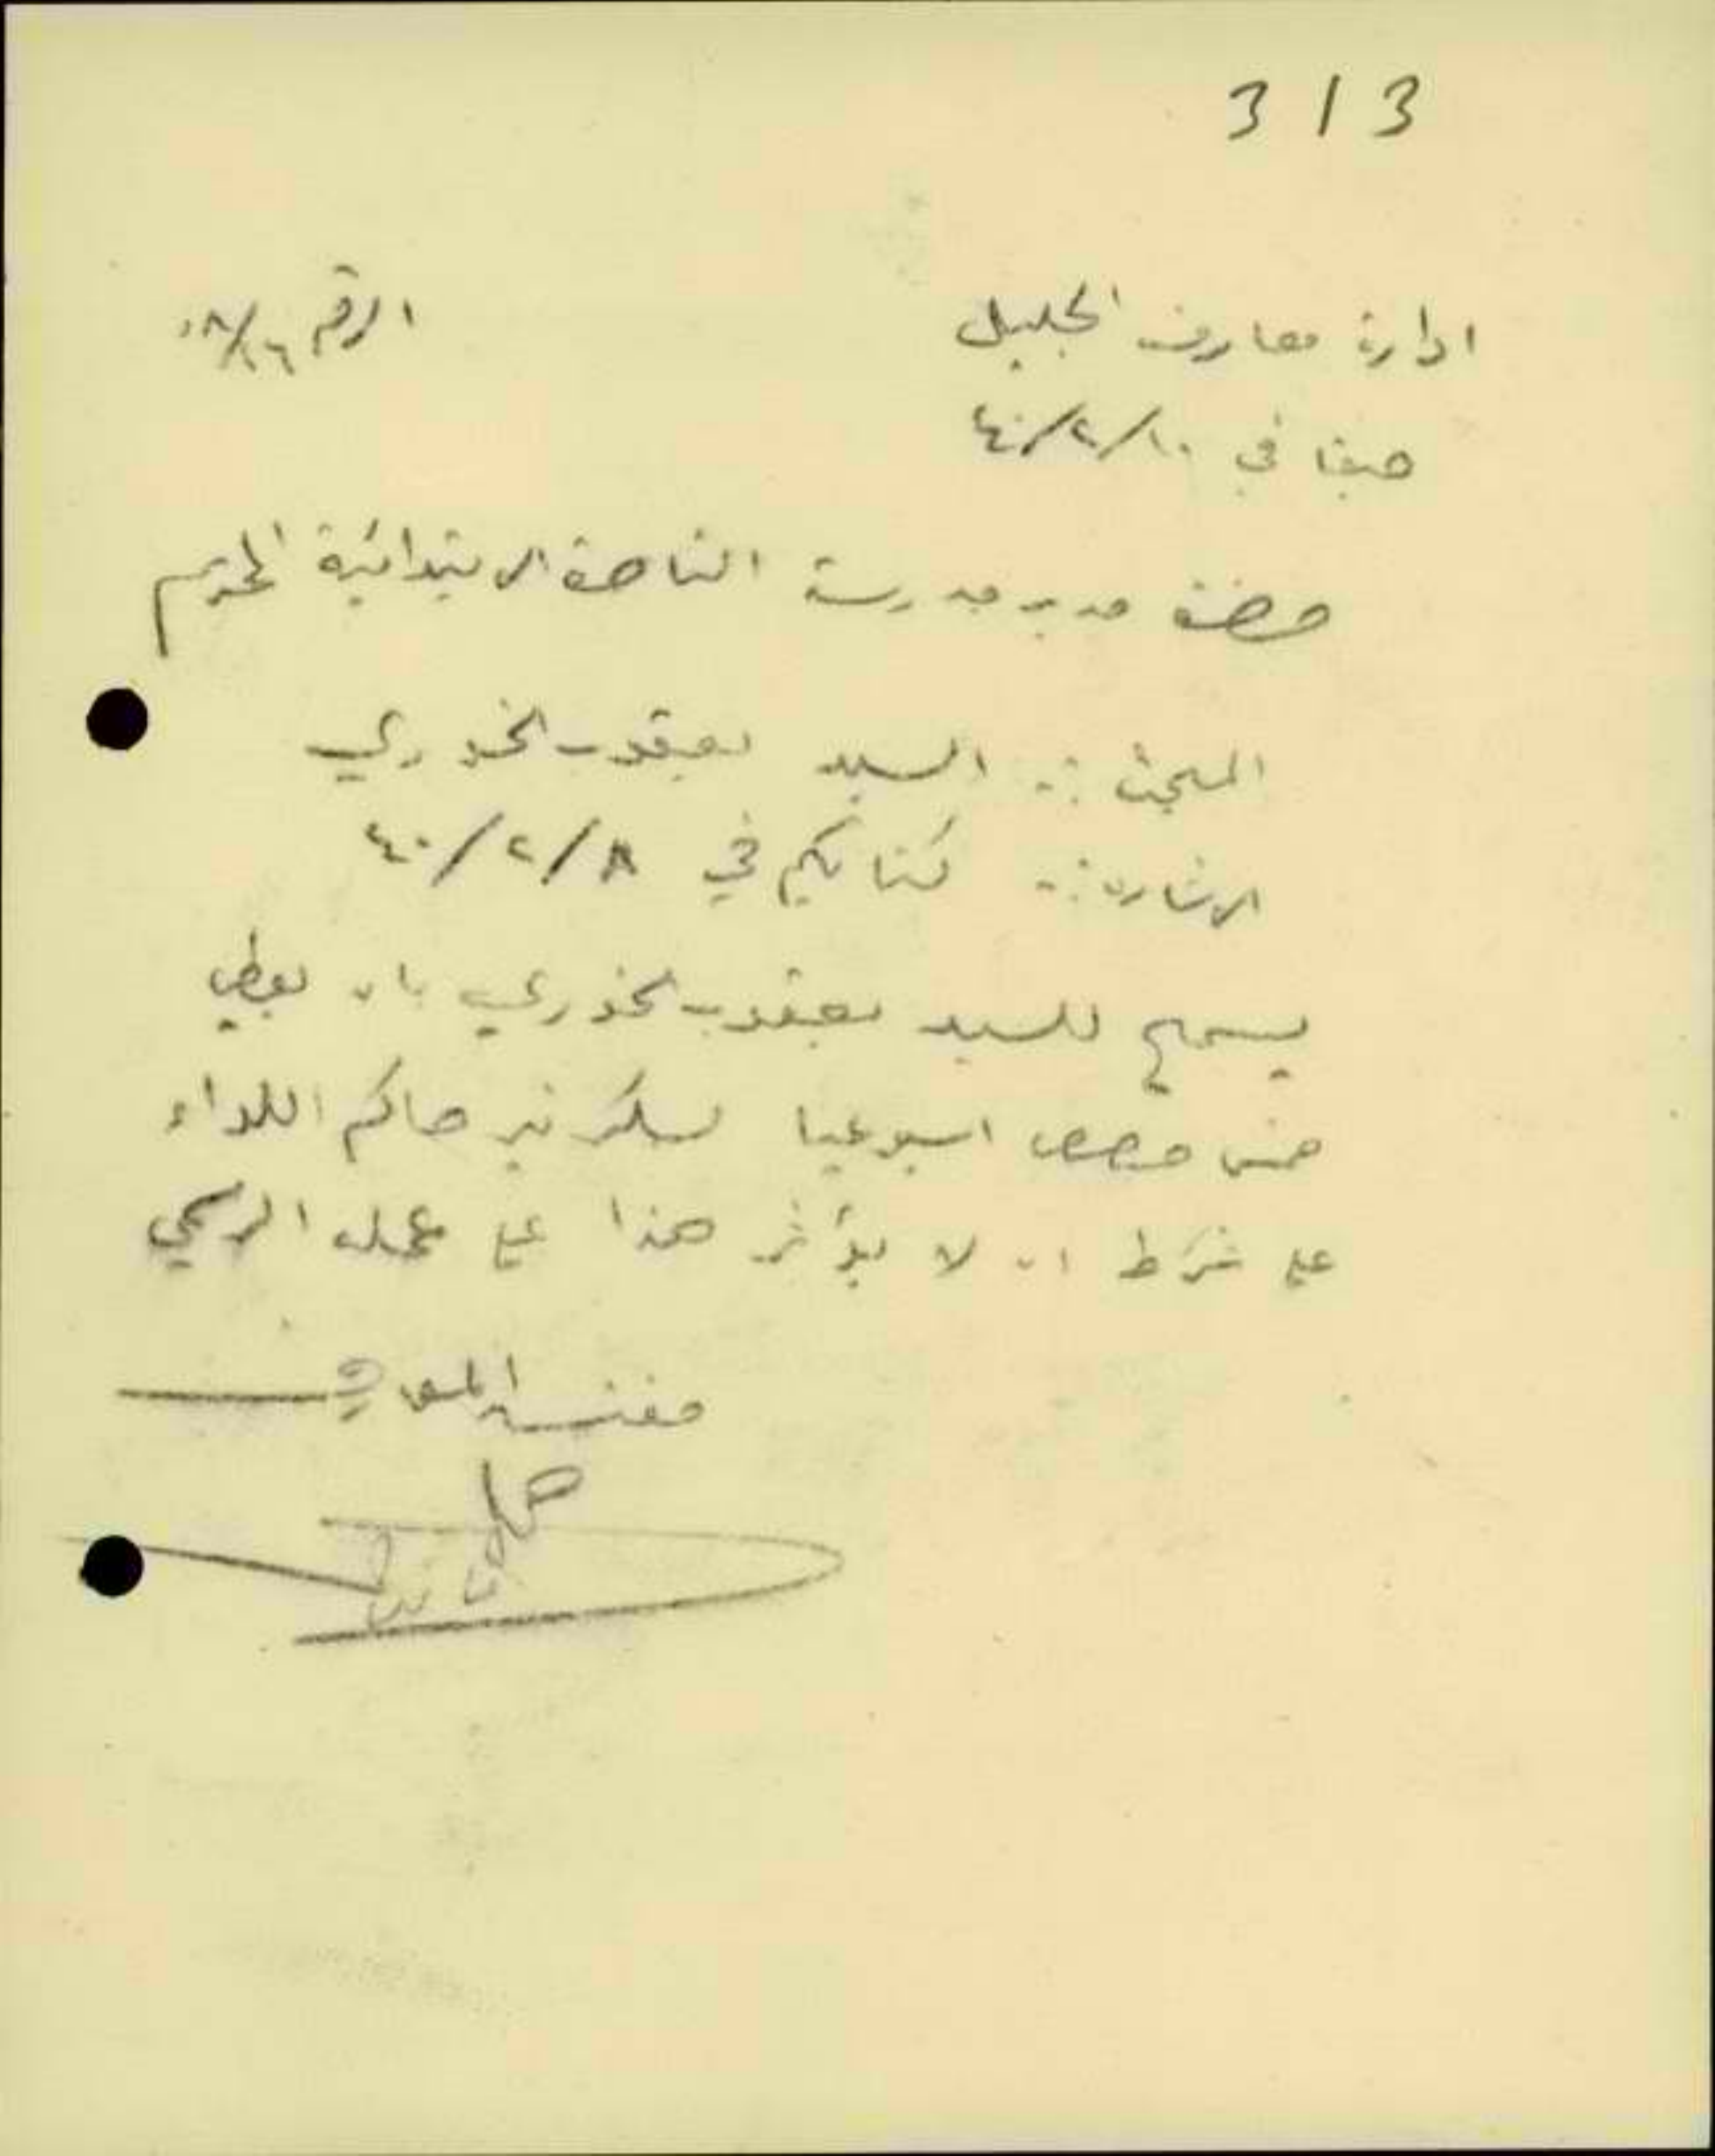 3 1 3
ادارة معارف الجليل
الرقم
حيفا في ١٠/٢/٤٠
حضرة مدير مدرسة الناصرة الابتدائية المحترم
المبحث :- السيد يعقوب الخوري
الاشارة :- كتابكم في ٨/٢/٤٠
يسمح للسيد يعقوب الخوري بان يعطي
خمس حصص اسبوعيا لسكرتير حاكم اللواء
على شرط ان لا يؤثر هذا على عمله الرسمي
مفتش المعارف